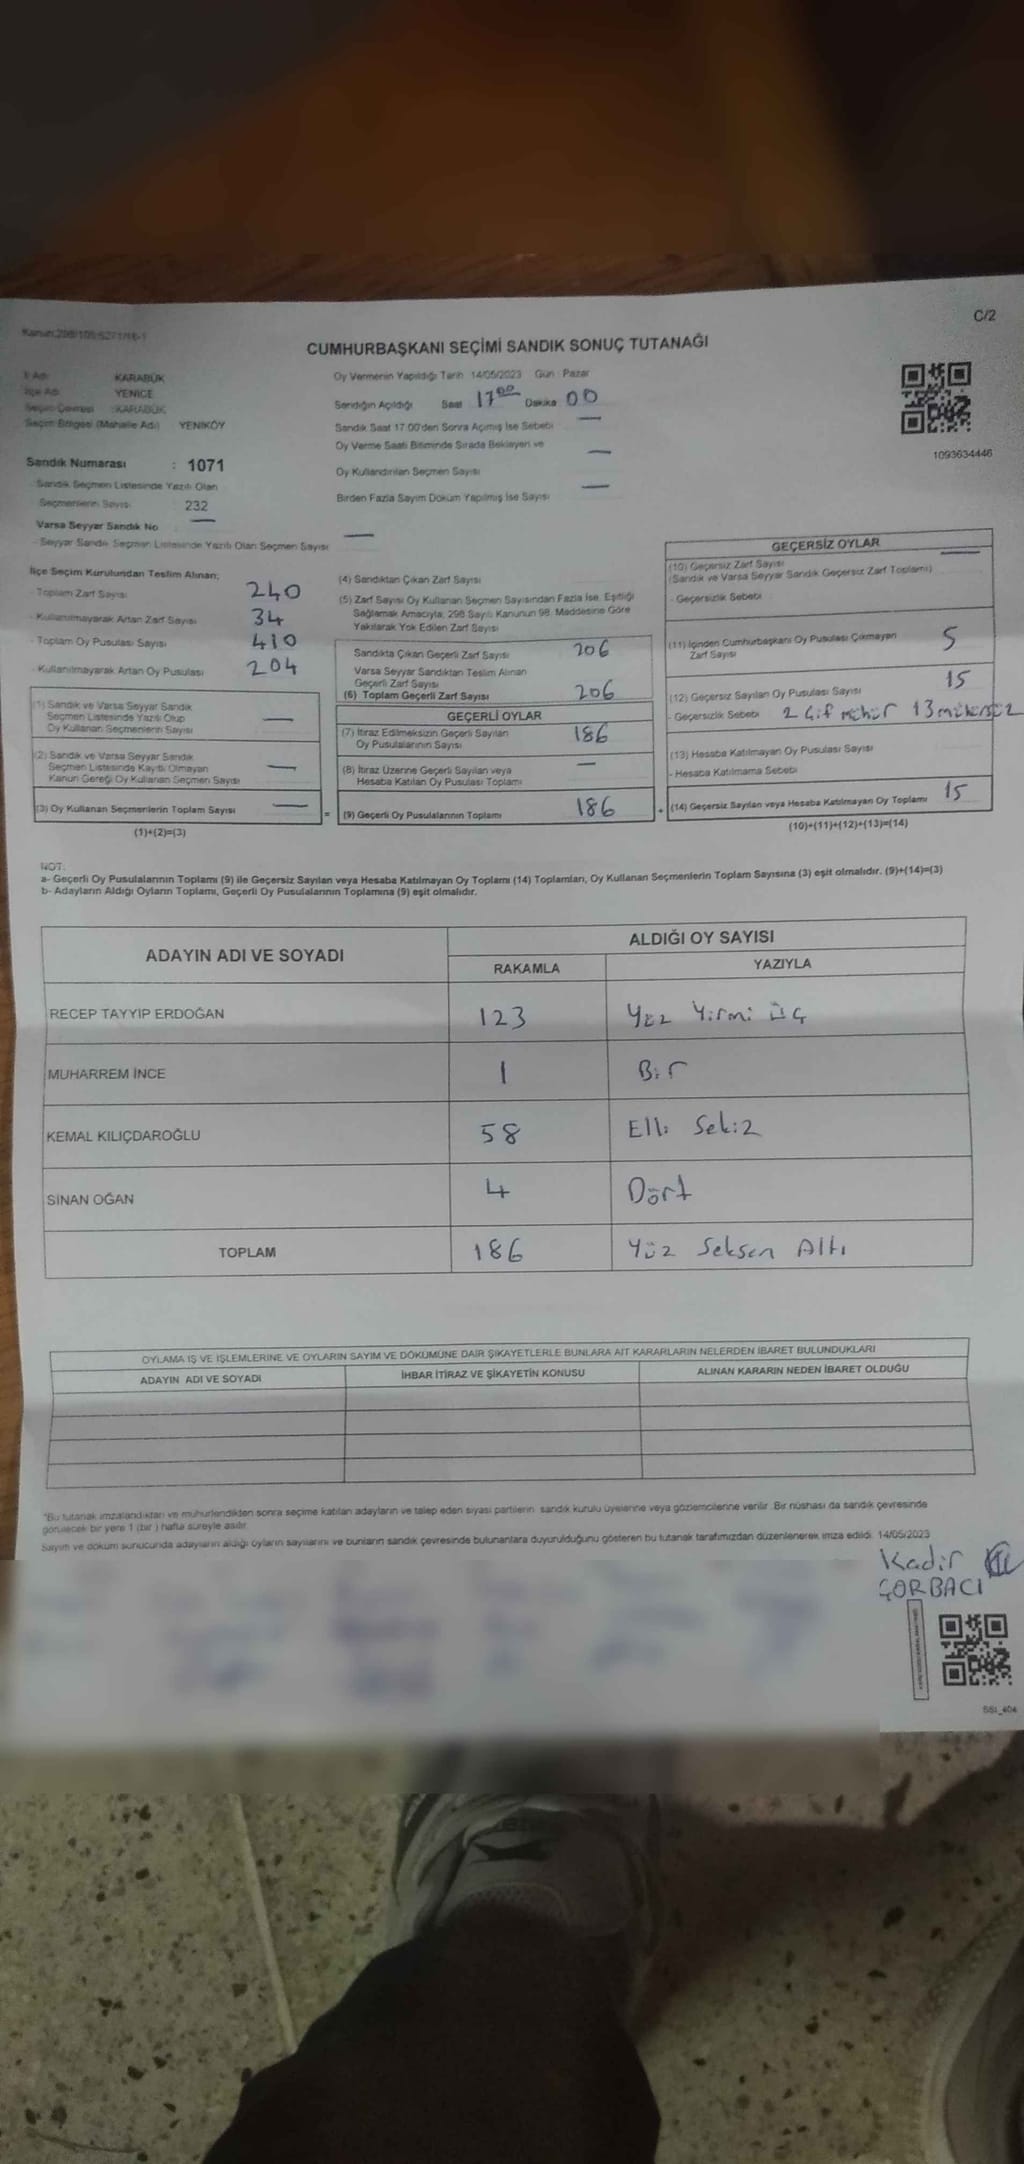 C/2
CUMHURBAŞKANI SEÇİMİ SANDIK SONUÇ TUTANAĞI
İl Adı KARABÜK
İlçe Adı YENİCE
Seçim Çevresi : KARABÜK
Seçim Bölgesi (Mahalle Adı) YENİKÖY
Sandık Numarası : 1071
Sandık Seçmen Listesinde Yazılı Olan
Seçmenlerin Sayısı 232
Varsa Seyyar Sandık No —
- Seyyar Sandık Seçmen Listesinde Yazılı Olan Seçmen Sayısı —
Oy Vermenin Yapıldığı Tarih 14/05/2023 Gün : Pazar
Sandığın Açıldığı Saat 17⁰⁰ Dakika 00
Sandık Saat 17:00'den Sonra Açılmış İse Sebebi —
Oy Verme Saati Bitiminde Sırada Bekleyen ve
Oy Kullandırılan Seçmen Sayısı —
Birden Fazla Sayım Döküm Yapılmış İse Sayısı —
1093634446
İlçe Seçim Kurulundan Teslim Alınan;
- Toplam Zarf Sayısı 240
- Kullanılmayarak Artan Zarf Sayısı 34
- Toplam Oy Pusulası Sayısı 410
- Kullanılmayarak Artan Oy Pusulası 204
(1) Sandık ve Varsa Seyyar Sandık
Seçmen Listesinde Yazılı Olup
Oy Kullanan Seçmenlerin Sayısı —
(2) Sandık ve Varsa Seyyar Sandık
Seçmen Listesinde Kayıtlı Olmayan
Kanun Gereği Oy Kullanan Seçmen Sayısı —
(3) Oy Kullanan Seçmenlerin Toplam Sayısı —
(1)+(2)=(3)
=
(4) Sandıktan Çıkan Zarf Sayısı
(5) Zarf Sayısı Oy Kullanan Seçmen Sayısından Fazla İse, Eşitliği
Sağlamak Amacıyla, 298 Sayılı Kanunun 98. Maddesine Göre
Yakılarak Yok Edilen Zarf Sayısı
Sandıkta Çıkan Geçerli Zarf Sayısı 206
Varsa Seyyar Sandıktan Teslim Alınan
Geçerli Zarf Sayısı
(6) Toplam Geçerli Zarf Sayısı 206
GEÇERLİ OYLAR
(7) İtiraz Edilmeksizin Geçerli Sayılan
Oy Pusulalarının Sayısı 186
(8) İtiraz Üzerine Geçerli Sayılan veya
Hesaba Katılan Oy Pusulası Toplamı —
(9) Geçerli Oy Pusulalarının Toplamı 186
+
GEÇERSİZ OYLAR
(10) Geçersiz Zarf Sayısı —
(Sandık ve Varsa Seyyar Sandık Geçersiz Zarf Toplamı)
- Geçersizlik Sebebi
(11) İçinden Cumhurbaşkanı Oy Pusulası Çıkmayan
Zarf Sayısı 5
(12) Geçersiz Sayılan Oy Pusulası Sayısı 15
- Geçersizlik Sebebi 2 Çif mühür 13 mühürsüz
(13) Hesaba Katılmayan Oy Pusulası Sayısı
- Hesaba Katılmama Sebebi
(14) Geçersiz Sayılan veya Hesaba Katılmayan Oy Toplamı 15
(10)+(11)+(12)+(13)=(14)
NOT:
a- Geçerli Oy Pusulalarının Toplamı (9) ile Geçersiz Sayılan veya Hesaba Katılmayan Oy Toplamı (14) Toplamları, Oy Kullanan Seçmenlerin Toplam Sayısına (3) eşit olmalıdır. (9)+(14)=(3)
b- Adayların Aldığı Oyların Toplamı, Geçerli Oy Pusulalarının Toplamına (9) eşit olmalıdır.
ADAYIN ADI VE SOYADI ALDIĞI OY SAYISI
RAKAMLA YAZIYLA
RECEP TAYYİP ERDOĞAN 123 Yüz Yirmi Üç
MUHARREM İNCE 1 Bir
KEMAL KILIÇDAROĞLU 58 Elli Sekiz
SİNAN OĞAN 4 Dört
TOPLAM 186 Yüz Seksen Altı
OYLAMA İŞ VE İŞLEMLERİNE VE OYLARIN SAYIM VE DÖKÜMÜNE DAİR ŞİKAYETLERLE BUNLARA AİT KARARLARIN NELERDEN İBARET BULUNDUKLARI
ADAYIN ADI VE SOYADI İHBAR İTİRAZ VE ŞİKAYETİN KONUSU ALINAN KARARIN NEDEN İBARET OLDUĞU
*Bu tutanak imzalandıktan ve mühürlendikten sonra seçime katılan adayların ve talep eden siyasi partilerin sandık kurulu üyelerine veya gözlemcilerine verilir. Bir nüshası da sandık çevresinde
görülecek bir yere 1 (bir) hafta süreyle asılır.
Sayım ve döküm sonucunda adayların aldığı oyların sayılarını ve bunların sandık çevresinde bulunanlara duyurulduğunu gösteren bu tutanak tarafımızdan düzenlenerek imza edildi. 14/05/2023
Kadir
ÇORBACI
SSI_404